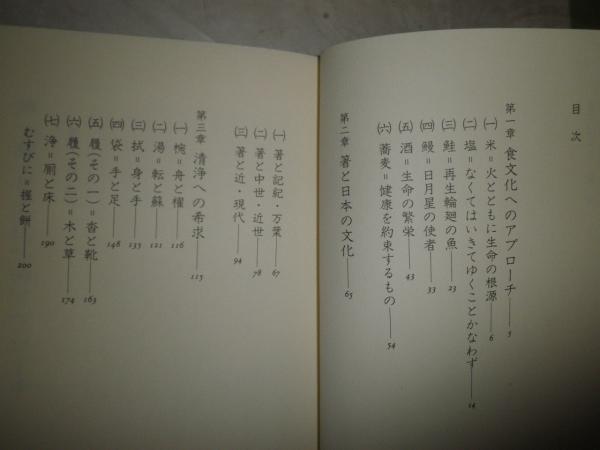 目次
第一章 食文化へのアプローチ——5
㈠ 米=火とともに生命の根源——6
㈡ 塩=なくてはいきてゆくことかなわず——14
㈢ 鮭=再生輪廻の魚——23
㈣ 鰻=日月星の使者——33
㈤ 酒=生命の繁栄——43
㈥ 蕎麦=健康を約束するもの——54
第二章 箸と日本の文化——65
㈠ 箸と記紀・万葉——67
㈡ 箸と中世・近世——78
㈢ 箸と近・現代——94
第三章 清浄への希求——115
㈠ 椀=舟と櫂——116
㈡ 湯=転と蘇——121
㈢ 拭=身と手——135
㈣ 袋=手と足——148
㈤ 履(その一)=沓と靴——163
㈥ 履(その二)=木と草——174
㈦ 浄=厠と床——190
むすびに=握と餅——200